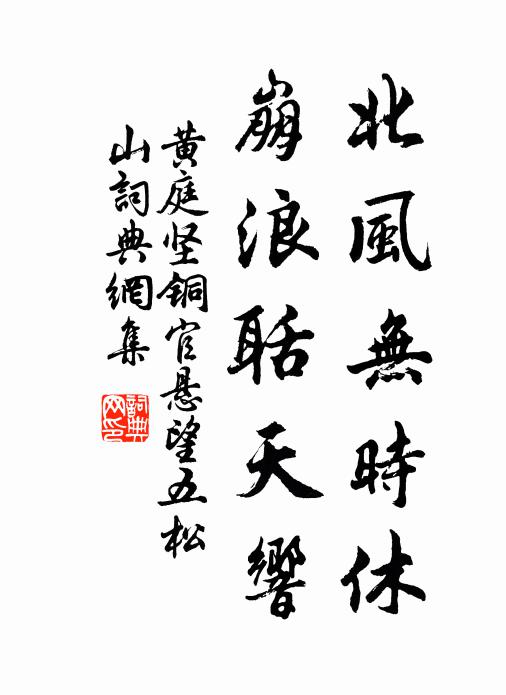 北風無時休
崩浪聒天響
黄庭坚銅官悬望五松
山詞典網集
詞典網印